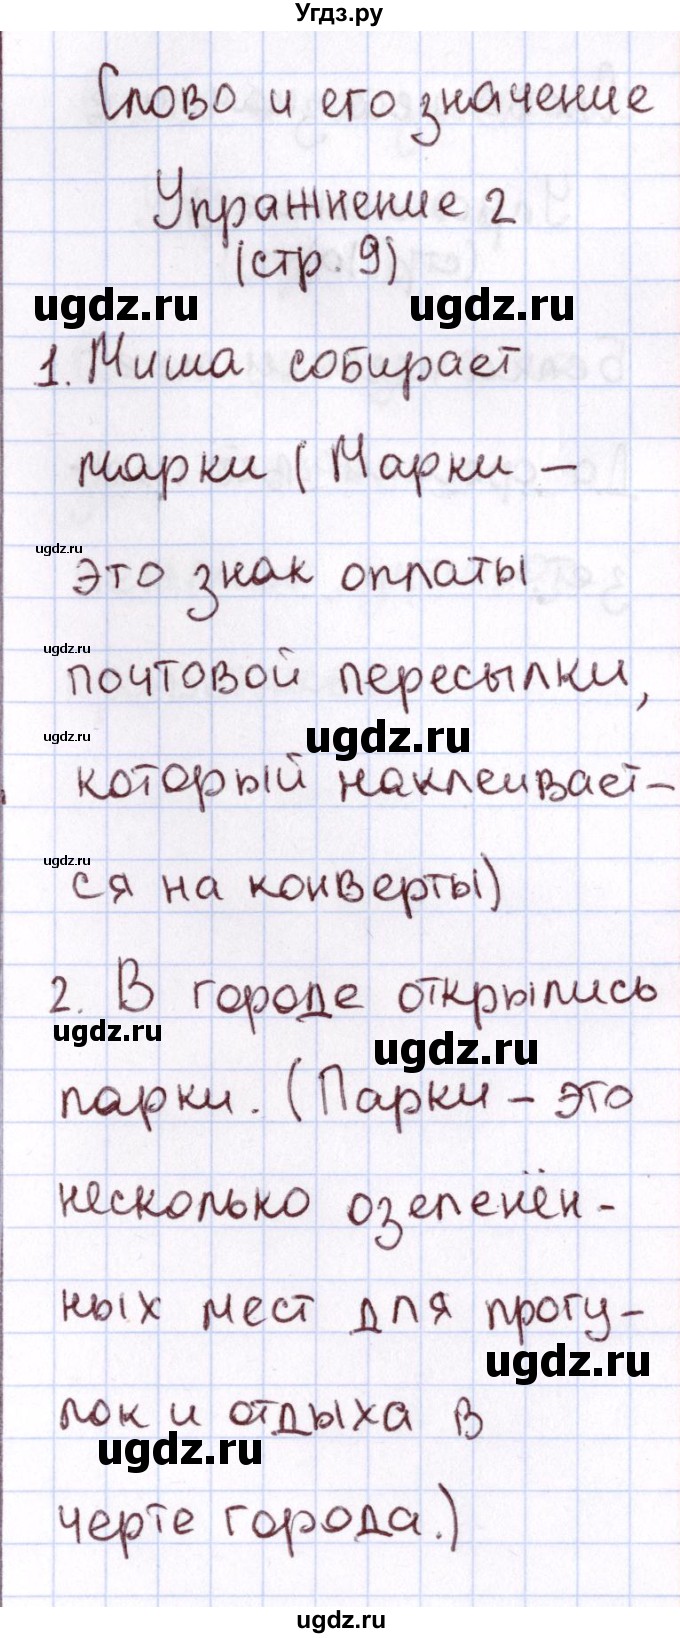 Угдз.ру
Слово и его значение
Упражнение 2
(стр. 9)
ugdz.ru ugdz.ru
1. Миша собирает
марки (Марки –
ugdz.ru
это знак оплаты
ugdz.ru
почтовой пересылки,
ugdz.ru ugdz.ru
который наклеивает-
ugdz.ru
ся на конверты)
2. В городе открылись
ugdz.ru ugdz.ru
парки. (Парки – это
несколько озеленён-
ных мест для прогу-
ugdz.ru
лок и отдыха в
ugdz.ru
черте города.)
ugdz.ru